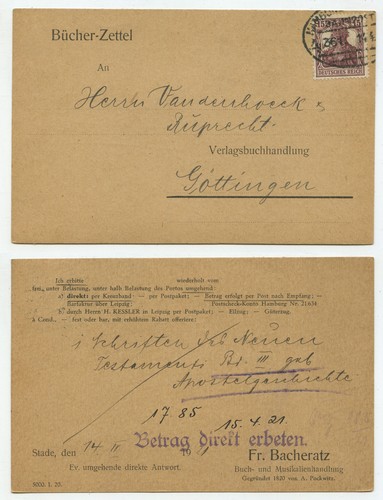 Bücher-Zettel
An
Herrn Vandenhoeck &
Ruprecht
Verlagsbuchhandlung
Göttingen
DEUTSCHES REICH
Ich erbitte wiederholt vom
fest, unter Belastung, unter halb Belastung des Portos umgehend:
direkt: per Kreuzband — per Postpaket; — Betrag erfolgt per Post nach Empfang; —
Barfaktur über Leipzig; Postscheck-Konto Hamburg Nr. 21634
durch Herrn H. KESSLER in Leipzig per Postpaket; — Eilzug; — Güterzug.
à Cond. — fest oder bar, mit erhöhtem Rabatt offeriere:
1 Schriften des Neuen
Testaments Bd. III geb
Apostelgeschichte
17.85
15.4.21.
Betrag direkt erbeten.
Stade, den 14 19 Fr. Bacheratz
Ev. umgehende direkte Antwort. Buch- und Musikalienhandlung
Gegründet 1820 von A. Pockwitz.
5000. 1. 20.